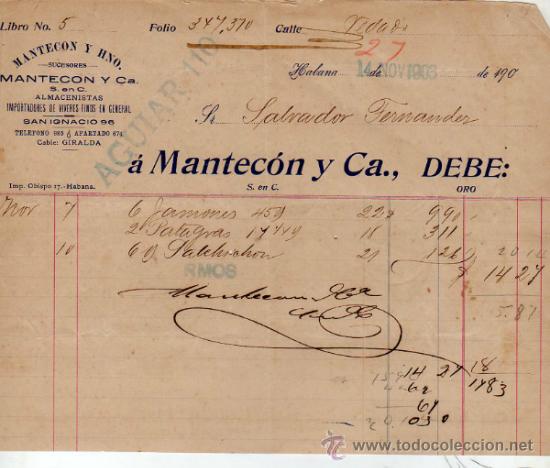 Libro No. 5 Folio 347,370 Calle Vedado
27
MANTECON Y HNO.
SUCESORES
MANTECON Y Ca.
S. en C.
ALMACENISTAS
IMPORTADORES DE VIVERES FINOS EN GENERAL
SAN IGNACIO 96
TELEFONO 985 ó APARTADO 674
Cable: GIRALDA
AGUIAR 110
Habana 14 NOV 1903 de de 190
Sr Salvador Fernandez
á Mantecón y Ca., DEBE:
Imp. Obispo 17.-Habana. S. en C. ORO
Nov 7 6 Jamones 459 22 990
2 Patagras 18 311
10 6 Salchichon 21 126 14 27
RMOS
Mantecon y Ca 5.87
14 27 18
62 1483
67
todocoleccion
www.todocoleccion.com